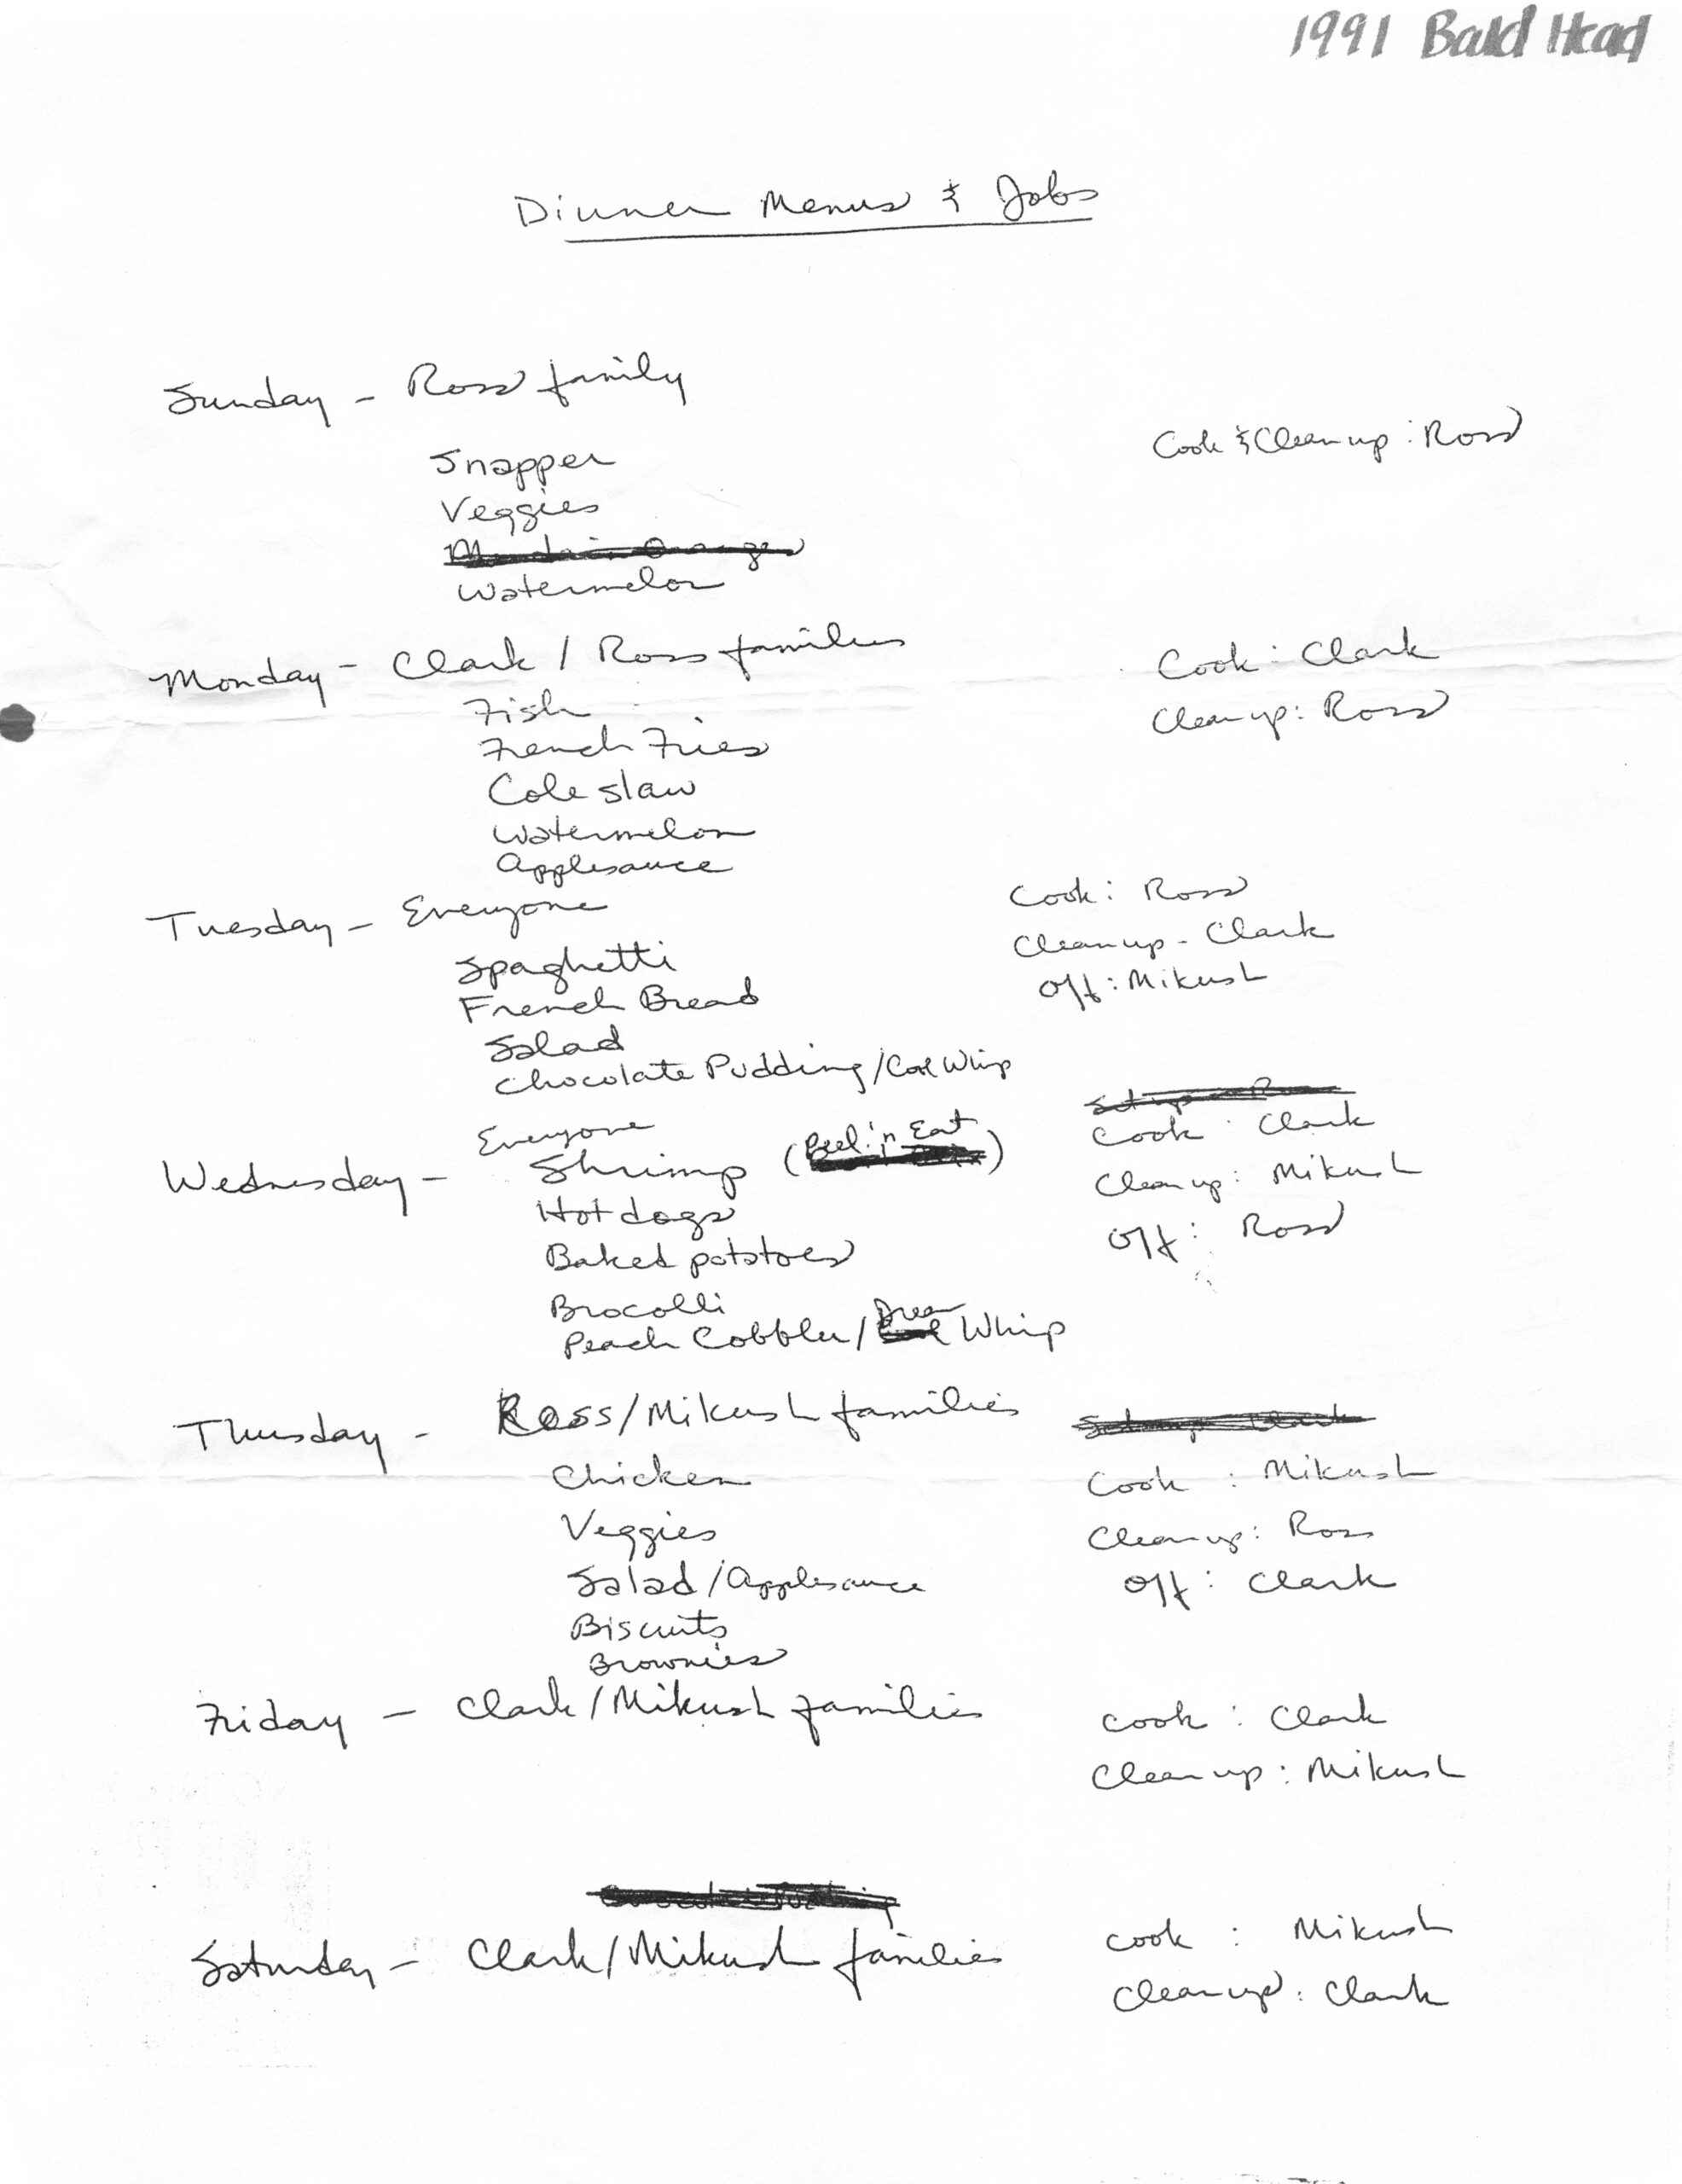 1991 Bald Head
Dinner Menus & Jobs
Sunday - Ross family
Cook & Clean up : Ross
Snapper
Veggies
Watermelon
Monday - Clark / Ross families
Cook : Clark
Clean up : Ross
Fish
French Fries
Cole slaw
Watermelon
Applesauce
Tuesday - Everyone
Cook : Ross
Clean up - Clark
Off : Mikush
Spaghetti
French Bread
Salad
Chocolate Pudding / Cool Whip
Wednesday - Everyone
Shrimp (Peel 'n Eat)
Cook : Clark
Clean up : Mikush
Off : Ross
Hot dogs
Baked potatoes
Brocolli
Peach Cobbler / Dream Whip
Thursday - Ross/Mikush families
Cook : Mikush
Clean up : Ross
Off : Clark
Chicken
Veggies
Salad / Applesauce
Biscuits
Brownies
Friday - Clark / Mikush families
Cook : Clark
Clean up : Mikush
Saturday - Clark / Mikush families
Cook : Mikush
Clean up : Clark